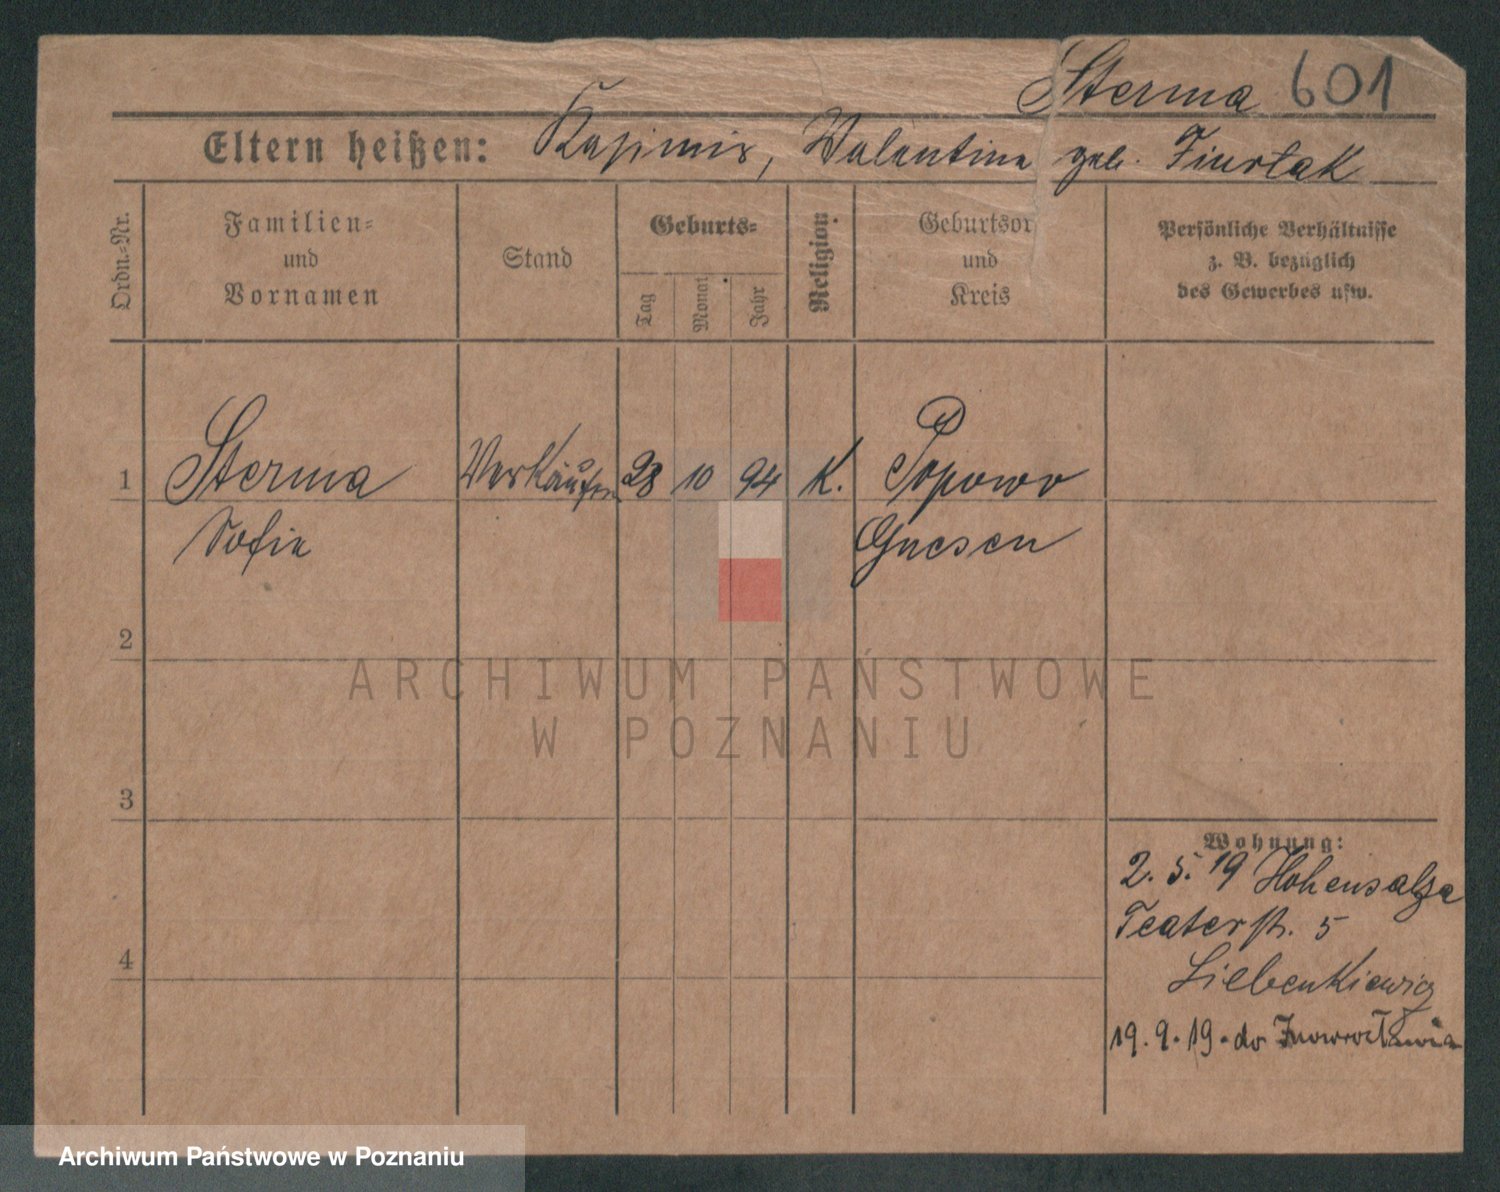 Sterma 601
Eltern heißen: Kasimir, Valentine geb.
Ordn.-Nr.
Familien- und Vornamen
Stand
Geburts-
Tag
Monat
Jahr
Religion.
Geburtsor
und
Kreis
Persönliche Verhältnisse
z. B. bezüglich
des Gewerbes usw.
1 Sterma Verkäuferin 28 10 94 K. Popowo
Sofie Gnesen
2
3
4
Wohnung:
2. 5. 19 Hohensalza
Teaterstr. 5
19. 9. 19. do Inowrocławia
ARCHIWUM PAŃSTWOWE
W POZNANIU
Archiwum Państwowe w Poznaniu